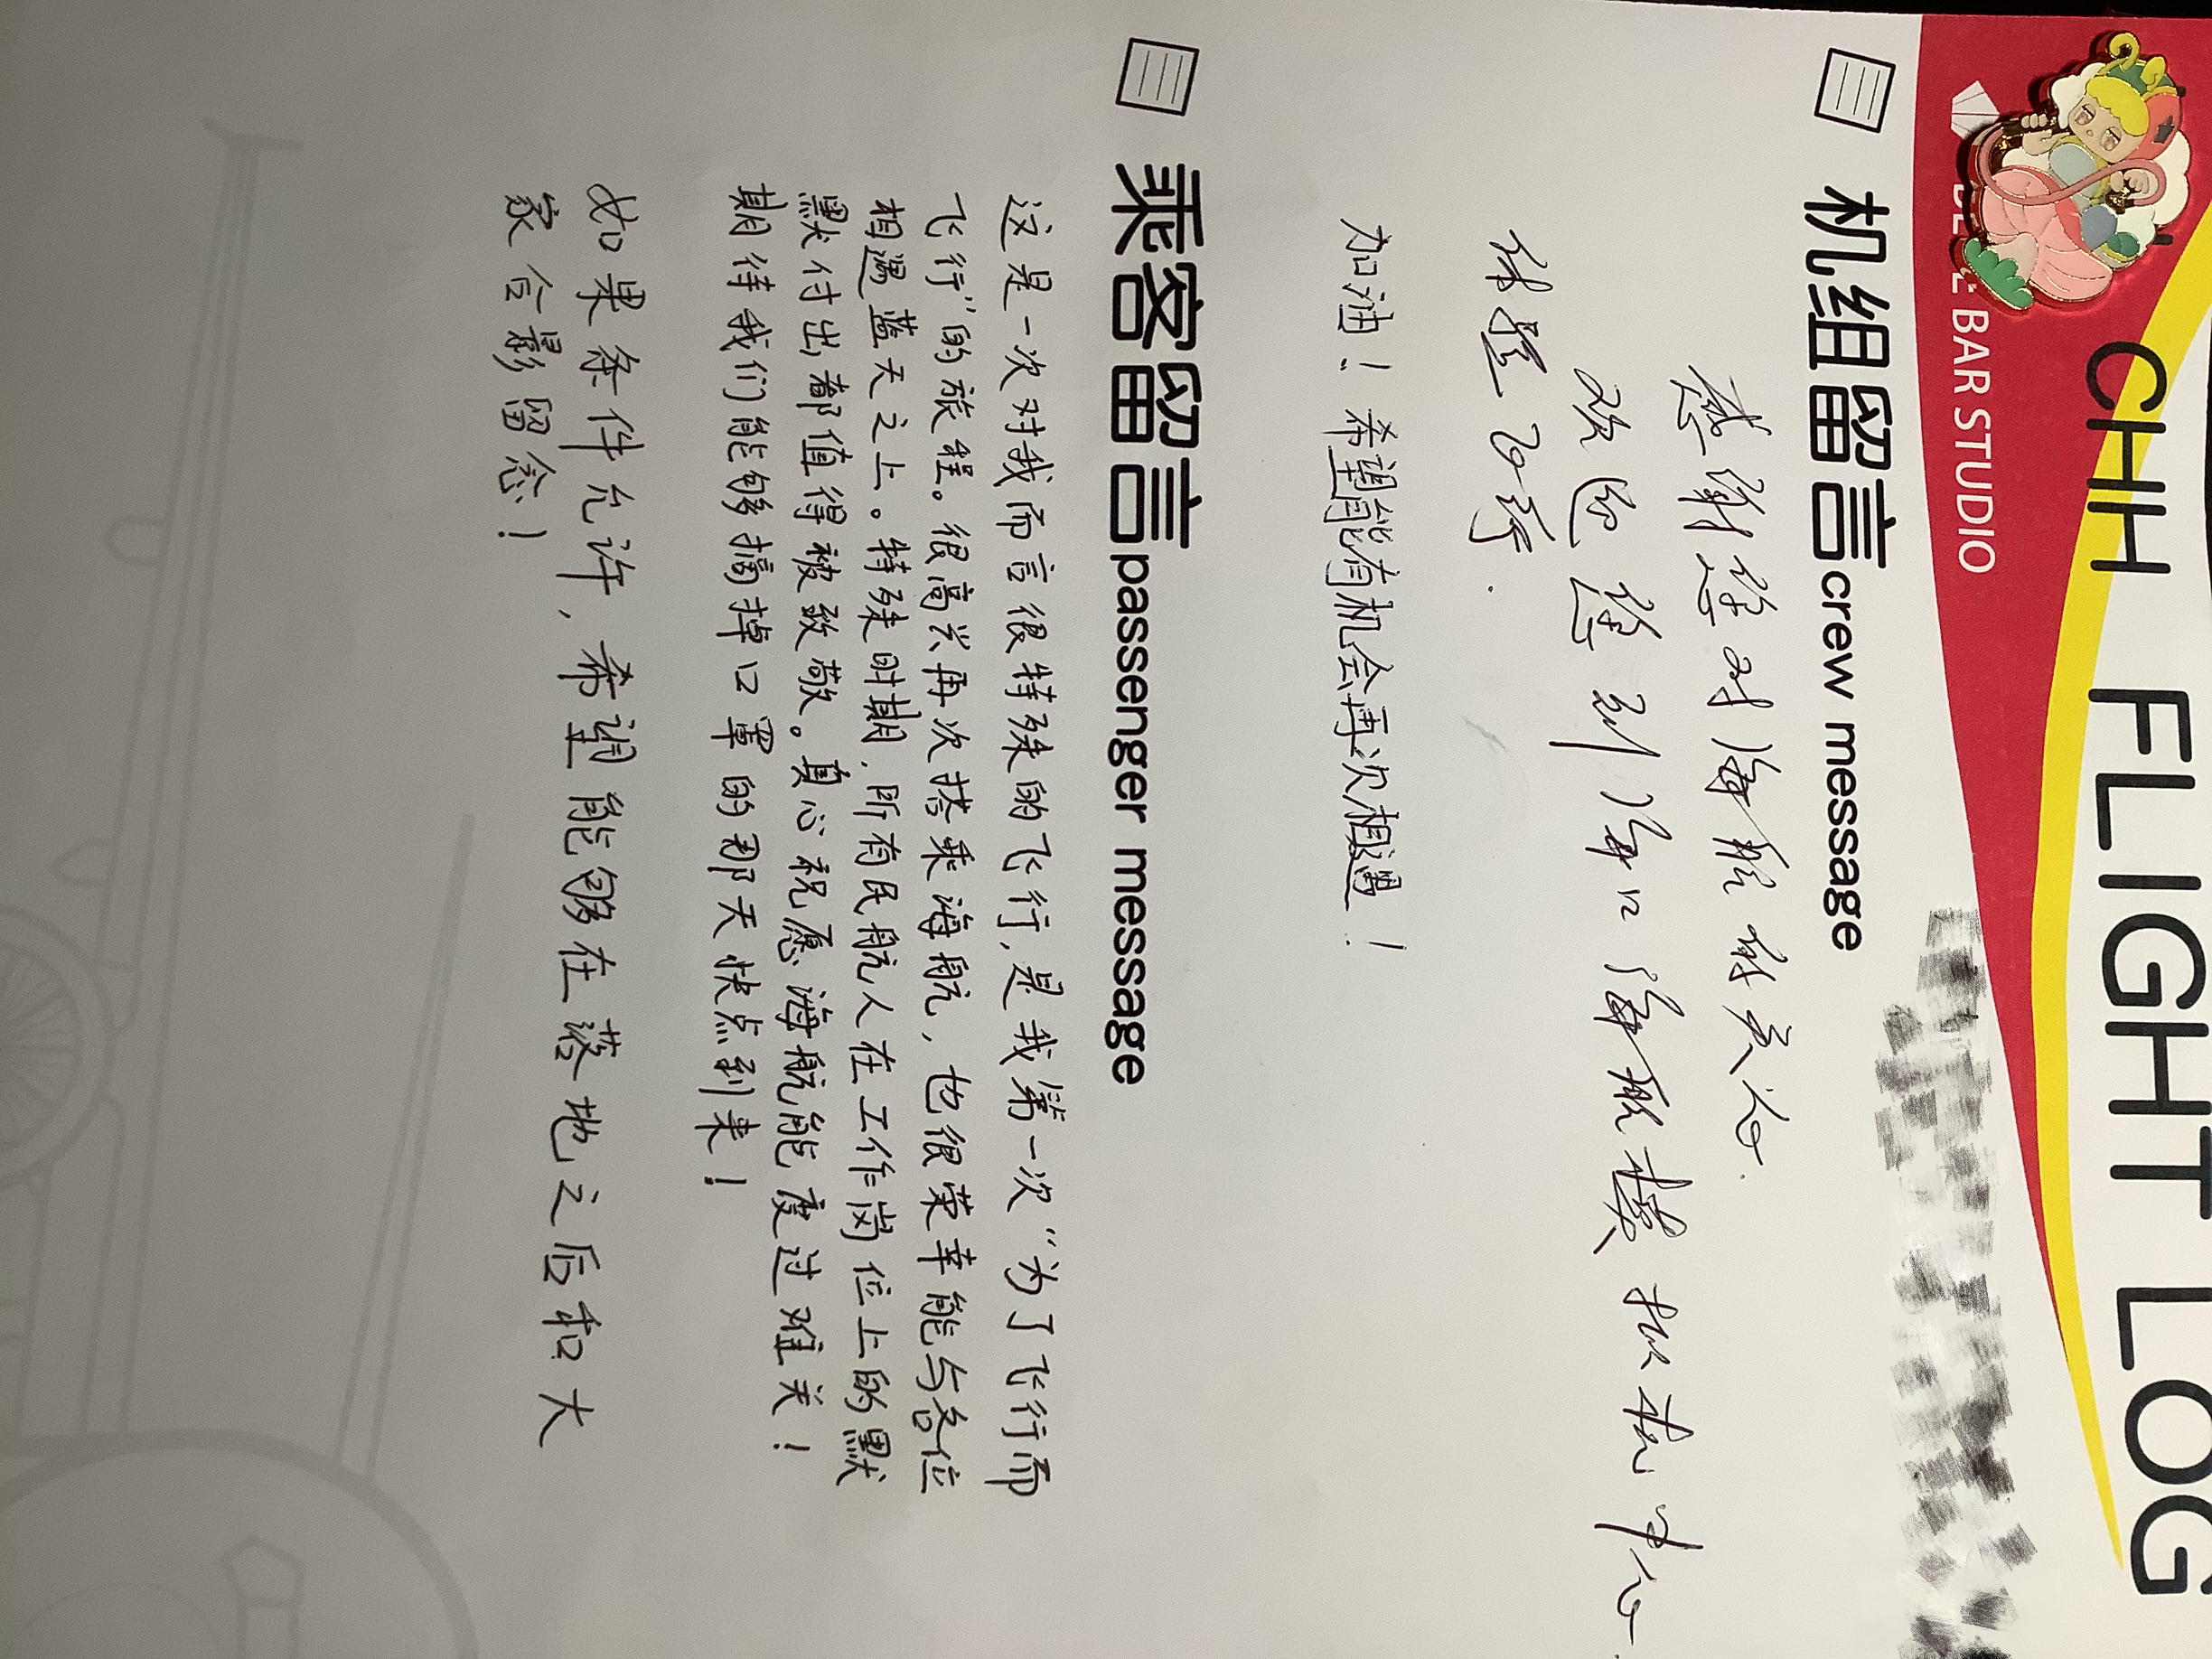 CHH FLIGHT LOG
BAR STUDIO
机组留言crew message
感谢您对海航的关心.
欢迎您到海口海航模拟机中心
体验飞行.
加油！希望能有机会再次相遇！
乘客留言passenger message
这是一次对我而言很特殊的飞行，是我第一次“为了飞行而
飞行”的旅程。很高兴再次搭乘海航，也很荣幸能与各位
相遇蓝天之上。特殊时期，所有民航人在工作岗位上的默
默付出都值得被致敬。真心祝愿海航能度过难关！
期待我们能够摘掉口罩的那天快点到来！
如果条件允许，希望能够在落地之后和大
家合影留念！